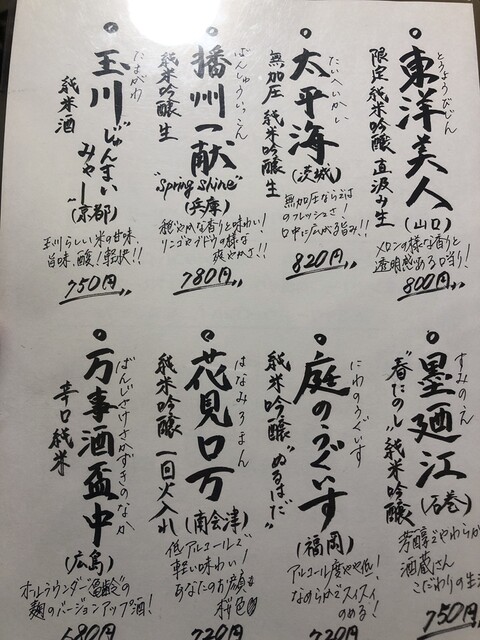 東洋美人
とうようびじん
限定 純米吟醸 直汲み生
(山口)
メロンの様な香りと
透明感ある口当り!
800円
太平海
たいへいかい
無加圧 純米吟醸生
(茨城)
無加圧ならでは
のフレッシュさ!
口中に広がる旨み!!
820円
播州一献
ばんしゅういっこん
純米吟醸生
"Spring Shine"
(兵庫)
穏やかな香りと味わい!
リンゴやブドウの様な
爽やかさ!!
780円
玉川
たまがわ
じゅんまい
みやー
純米酒
(京都)
玉川らしい米の甘味、
旨味、酸!軽快!!
750円
墨廼江
すみのえ
"春たのし"純米吟醸
(石巻)
芳醇でやわらか
酒蔵さん
こだわりの生
750円
庭のうぐいす
にわのうぐいす
純米吟醸 "ぬるはだ"
(福岡)
アルコール度やや低!
なめらかでスイスイ
のめる!
720円
花見ロ万
はなみろまん
純米吟醸 一回火入れ
(南会津)
低アルコールで
軽い味わい!
あなたのお顔も
桜色
720円
万事酒盃中
ばんじさけさかずきのなか
辛口純米
(広島)
オールラウンダー"亀齢"の
麹のバージョンアップ酒!
680円